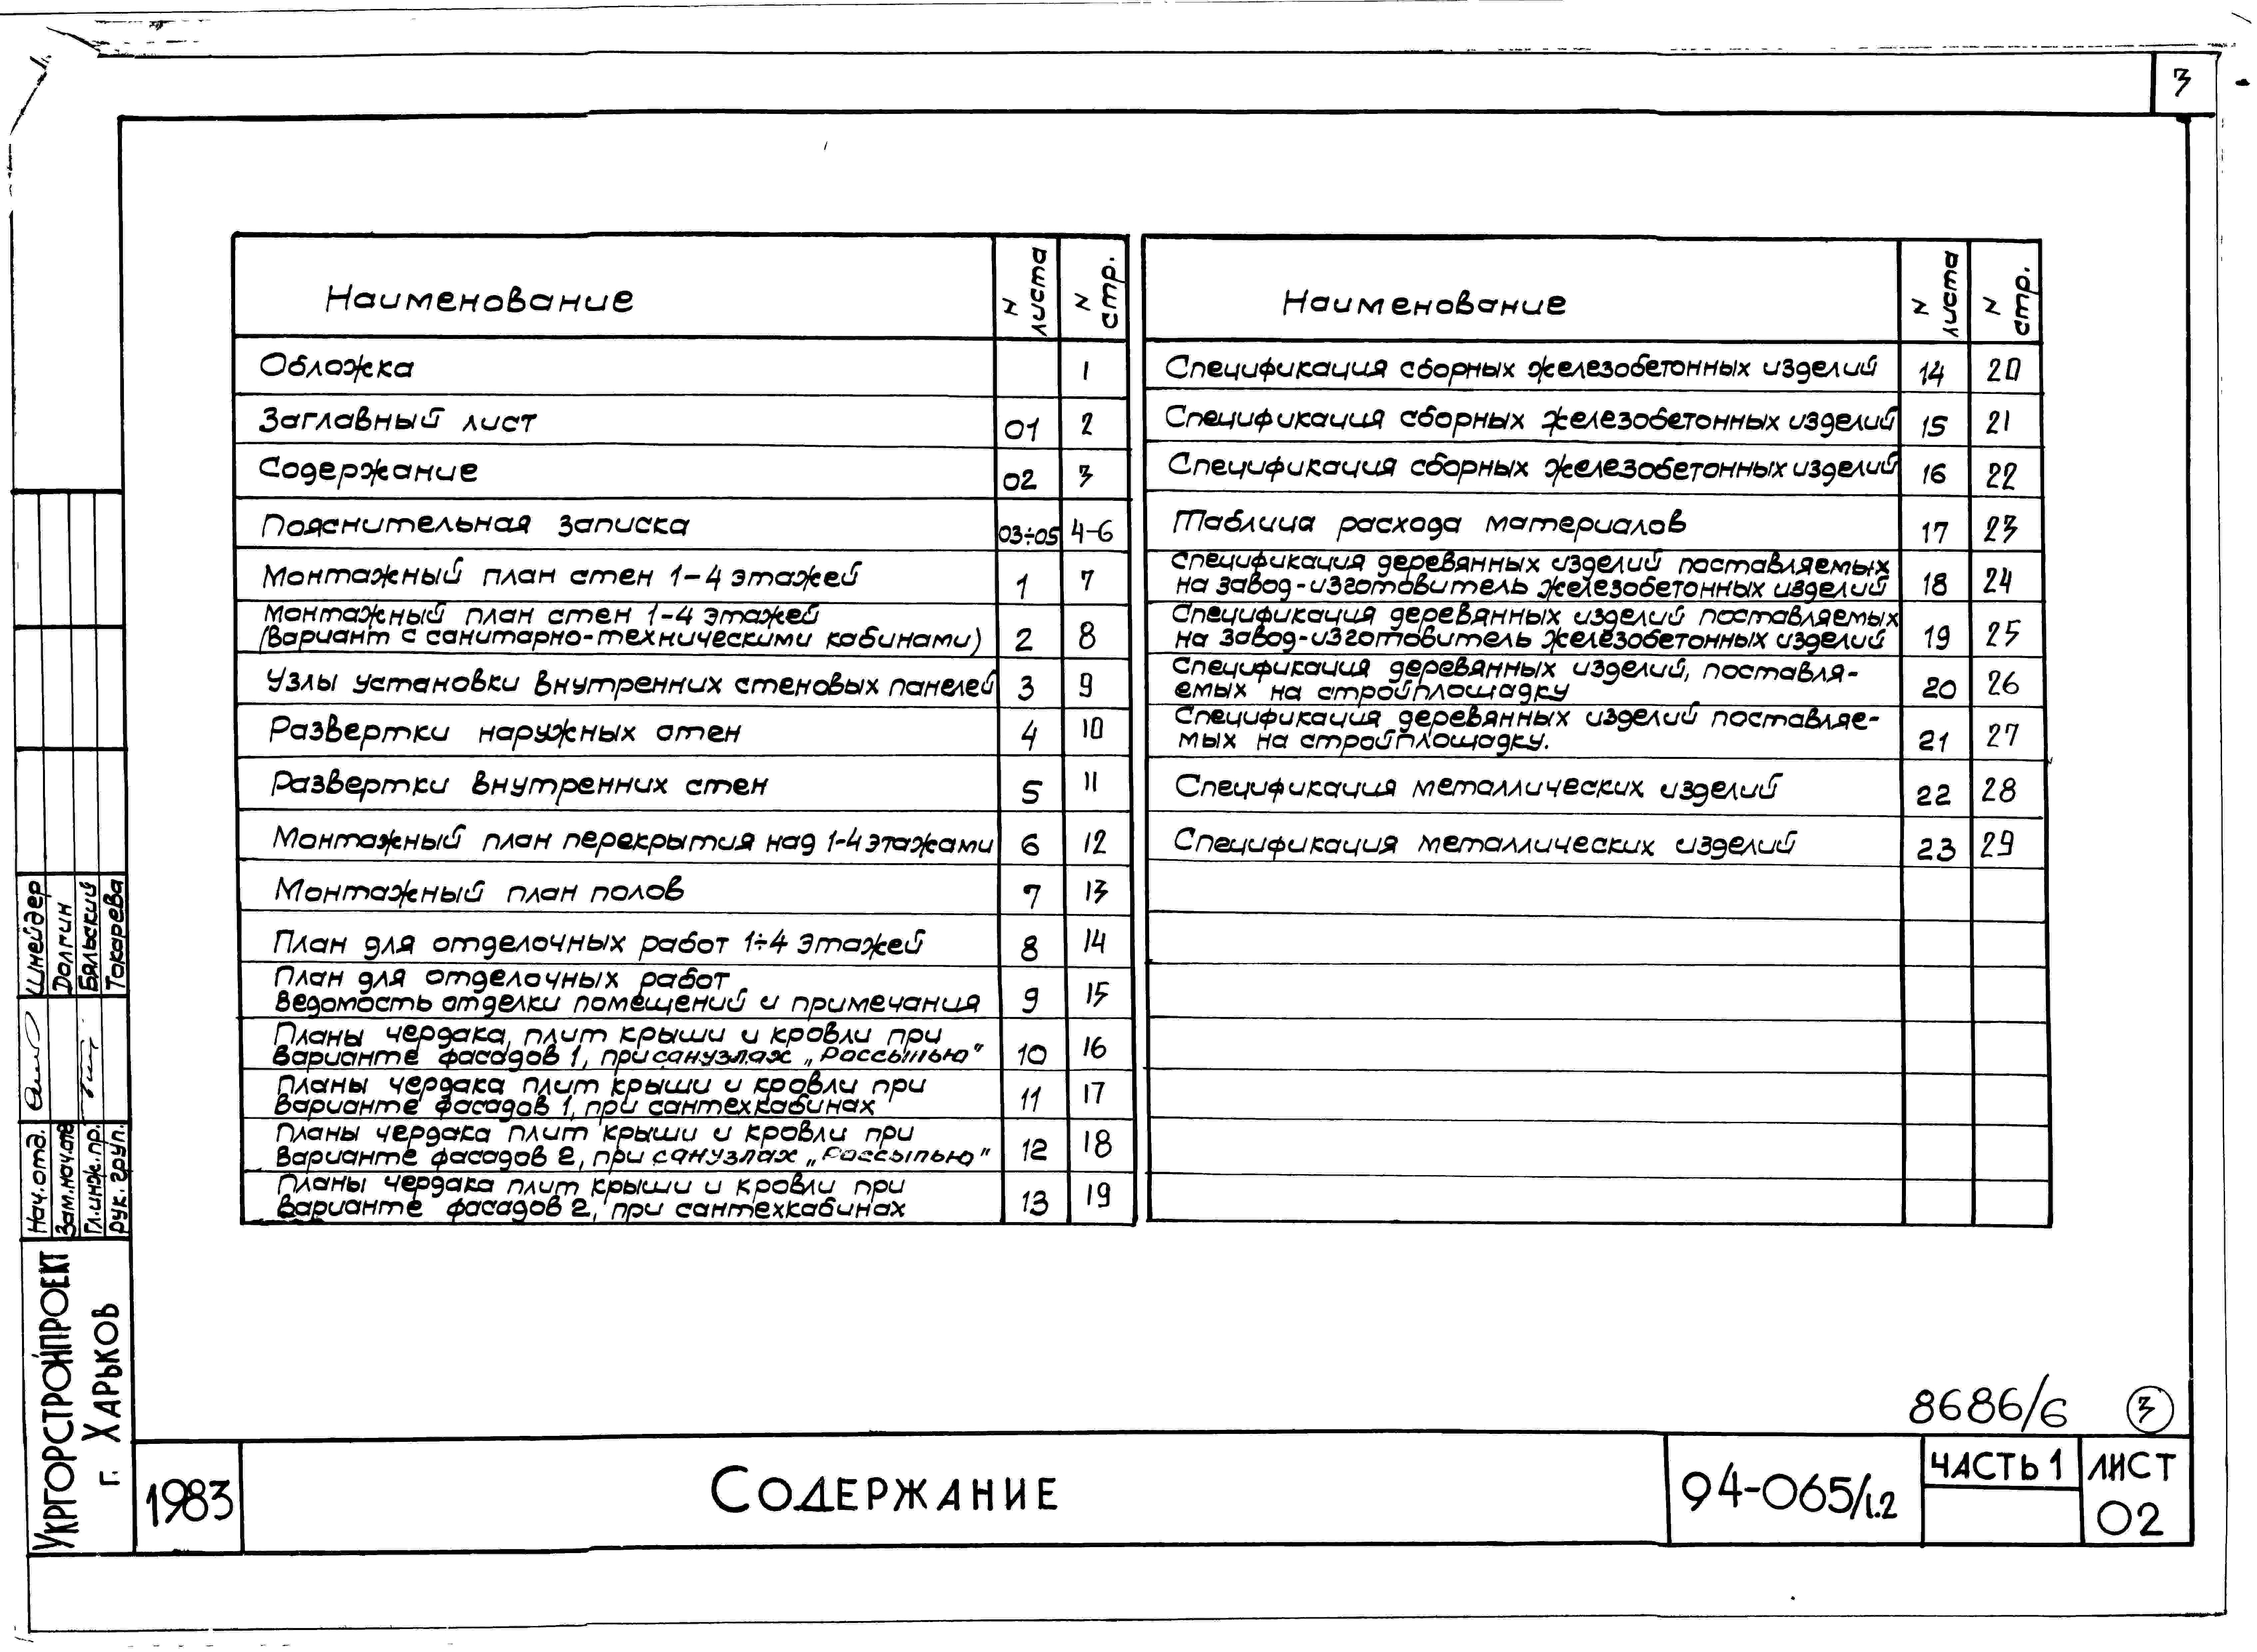 3
Наименование
N листа
N стр.
Обложка 1
Заглавный лист 01 2
Содержание 02 3
Пояснительная записка 03÷05 4-6
Монтажный план стен 1-4 этажей 1 7
Монтажный план стен 1-4 этажей
(Вариант с санитарно-техническими кабинами) 2 8
Узлы установки внутренних стеновых панелей 3 9
Развертки наружных стен 4 10
Развертки внутренних стен 5 11
Монтажный план перекрытия над 1-4 этажами 6 12
Монтажный план полов 7 13
План для отделочных работ 1÷4 этажей 8 14
План для отделочных работ
Ведомость отделки помещений и примечания 9 15
Планы чердака, плит крыши и кровли при
варианте фасадов 1, при санузлах „Россыпью" 10 16
Планы чердака плит крыши и кровли при
варианте фасадов 1, при сантехкабинах 11 17
Планы чердака плит крыши и кровли при
варианте фасадов 2, при санузлах „Россыпью" 12 18
Планы чердака плит крыши и кровли при
варианте фасадов 2, при сантехкабинах 13 19
Наименование
N листа
N стр.
Спецификация сборных железобетонных изделий 14 20
Спецификация сборных железобетонных изделий 15 21
Спецификация сборных железобетонных изделий 16 22
Таблица расхода материалов 17 23
Спецификация деревянных изделий поставляемых
на завод-изготовитель железобетонных изделий 18 24
Спецификация деревянных изделий поставляемых
на завод-изготовитель железобетонных изделий 19 25
Спецификация деревянных изделий, поставля-
емых на стройплощадку 20 26
Спецификация деревянных изделий поставляе-
мых на стройплощадку. 21 27
Спецификация металлических изделий 22 28
Спецификация металлических изделий 23 29
Нач.отд. Шнейдер
Зам.нач.отд Долгин
Гл.инж.пр. Бяльский
Рук. груп. Токарева
УКРГОРСТРОЙПРОЕКТ
г. ХАРЬКОВ
8686/6 3
1983
СОДЕРЖАНИЕ
94-065/1.2
ЧАСТЬ 1
ЛИСТ
02